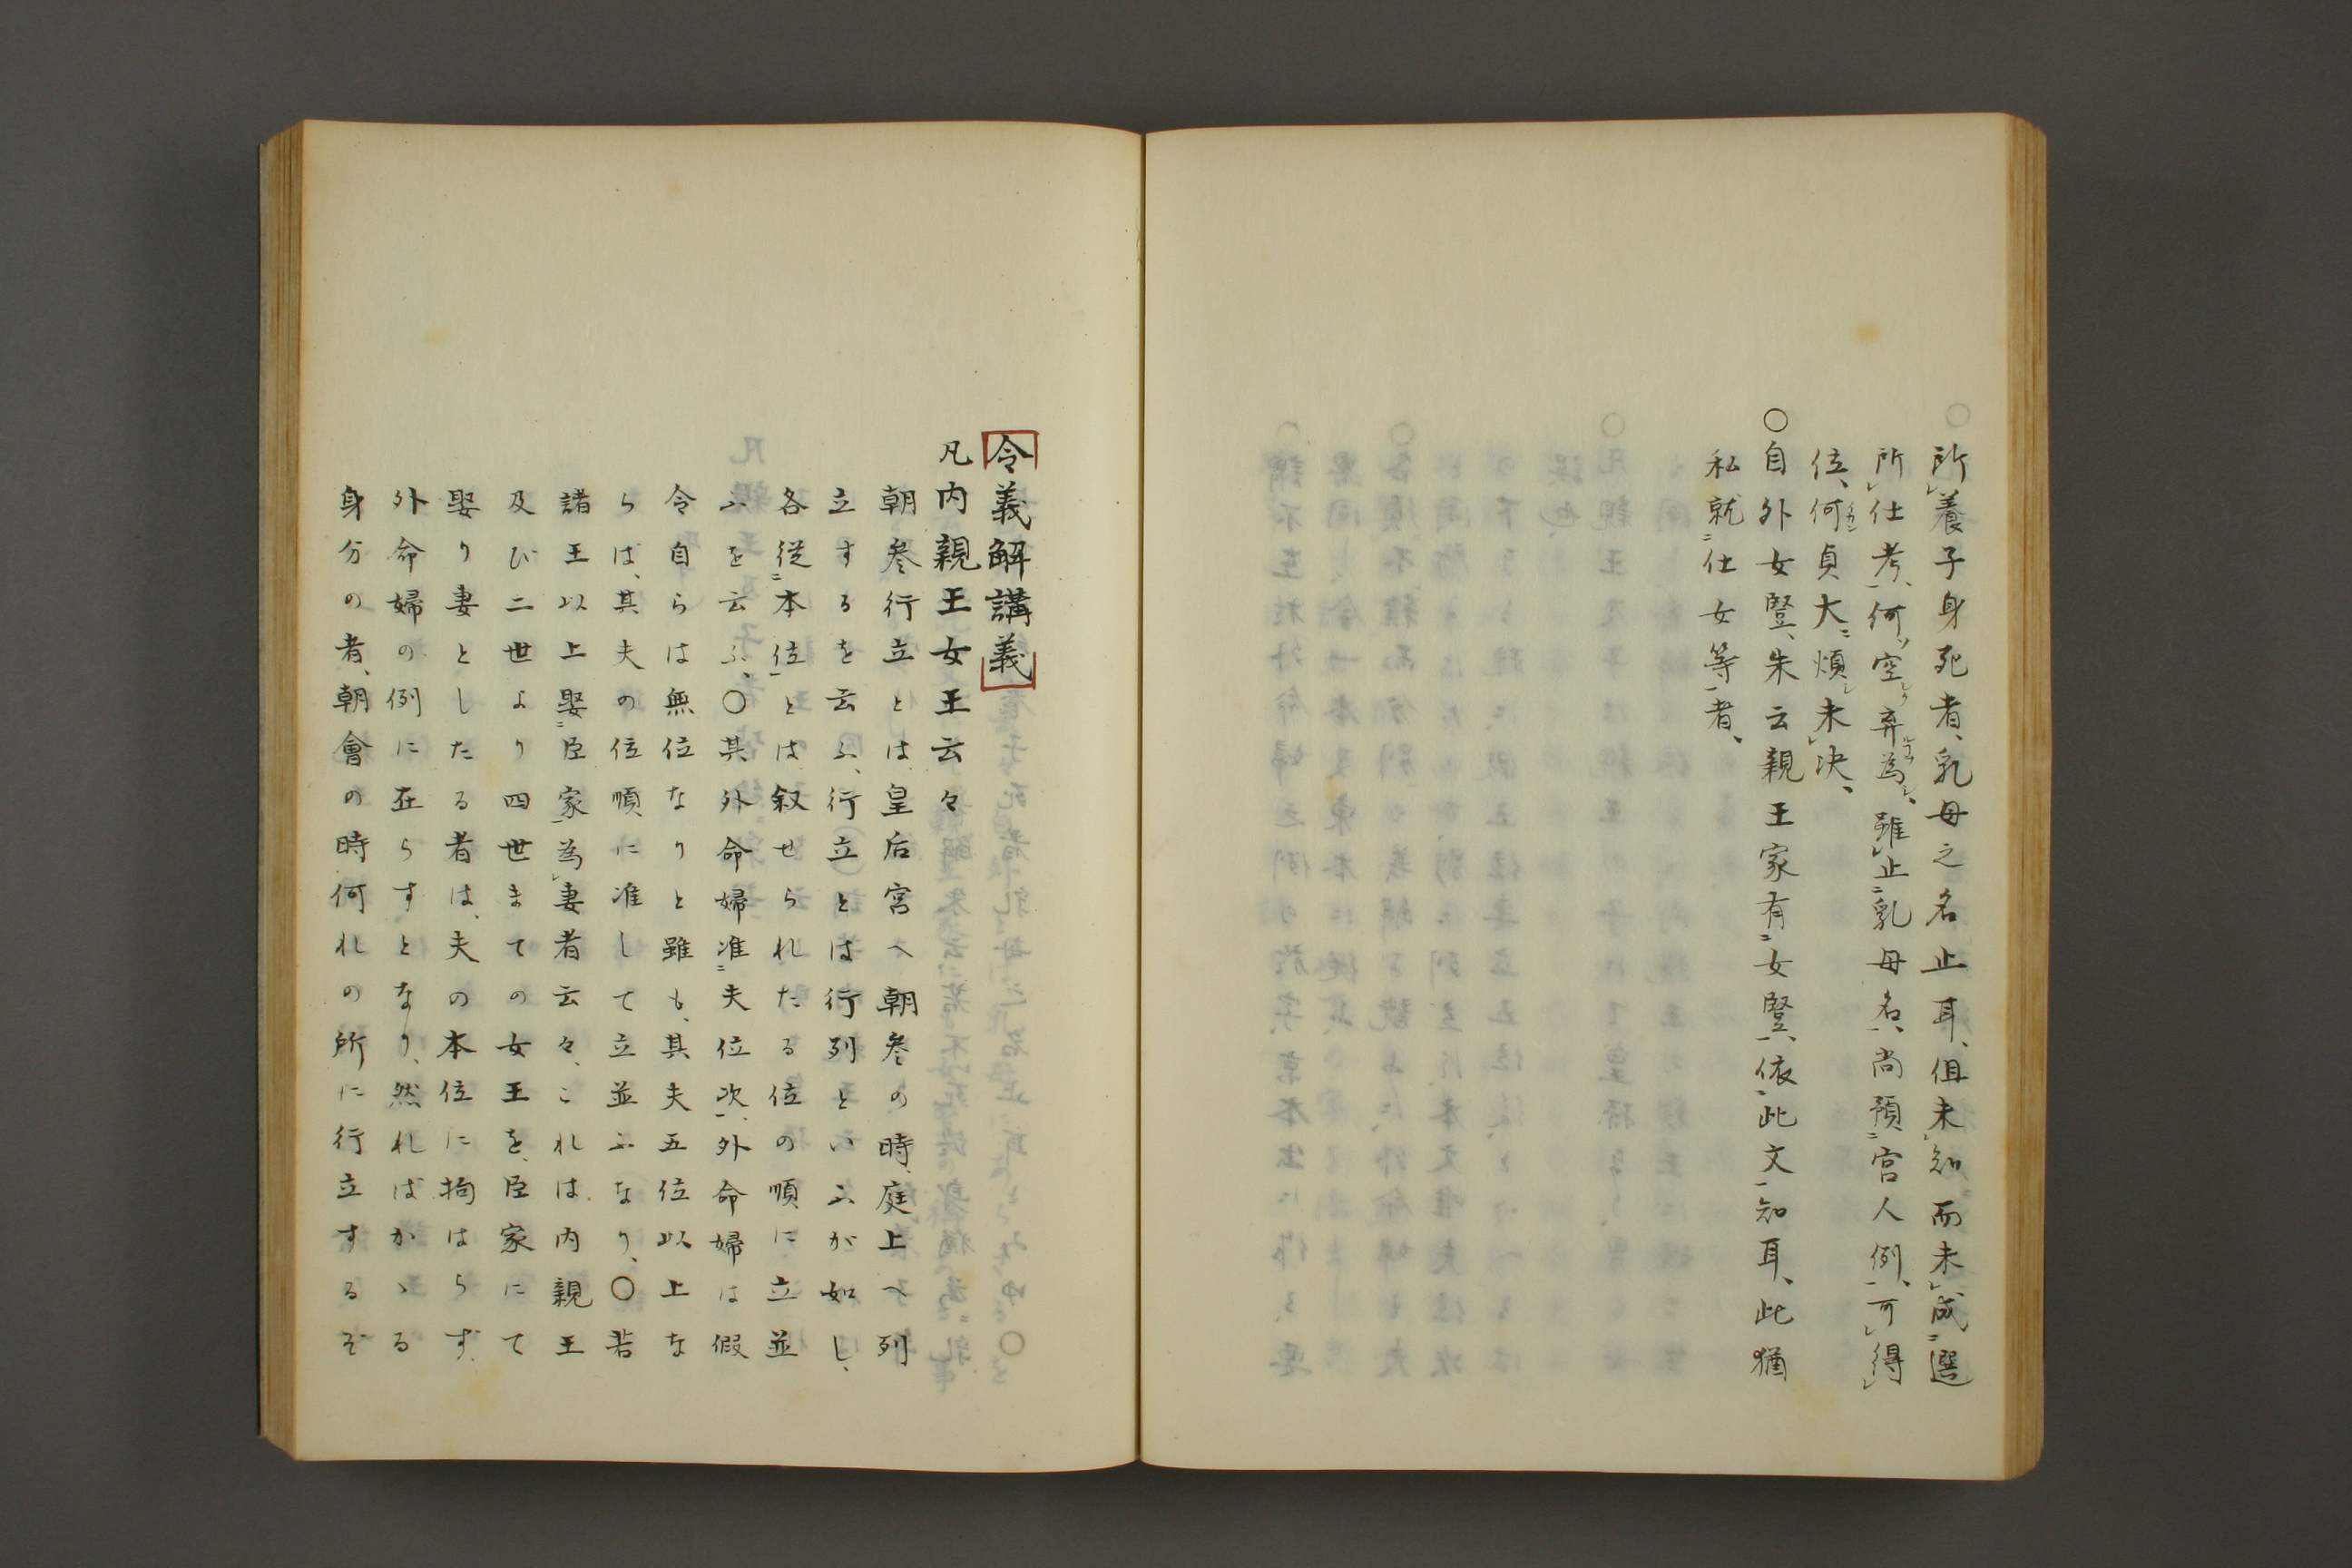 所レ養子身死者、乳母之名止耳、但未レ知而未レ成二選
所レ仕考一、何ソ空シク弃為レ、雖レ止二乳母名一、尚預二宮人例一、可レ得レ
位、何イカン貞大ニ煩レ未レ決、
〇自外女竪、朱云親王家有二女竪一、依此文一知耳、此猶
私就二仕女等一者、
令義解講義
凡内親王女王云々
朝参行立とは皇后宮へ朝参の時、庭上へ列
立するを云ふ、行立とは行列といふが如し、
各従二本位一とは叙せられたる位の順に立並
ふを云ふ、〇其外命婦准二夫位次一、外命婦は假
令自らは無位なりと雖も、其夫五位以上な
らば、其夫の位順に准して立並ふなり、〇若
諸王以上娶二臣家一為レ妻者云々、これは内親王
及び二世より四世まての女王を、臣家にて
娶り妻としたる者は、夫の本位に拘はらず、
外命婦の例に在らすとなり、然ればかゝる
身分の者、朝會の時何れの所に行立するぞ